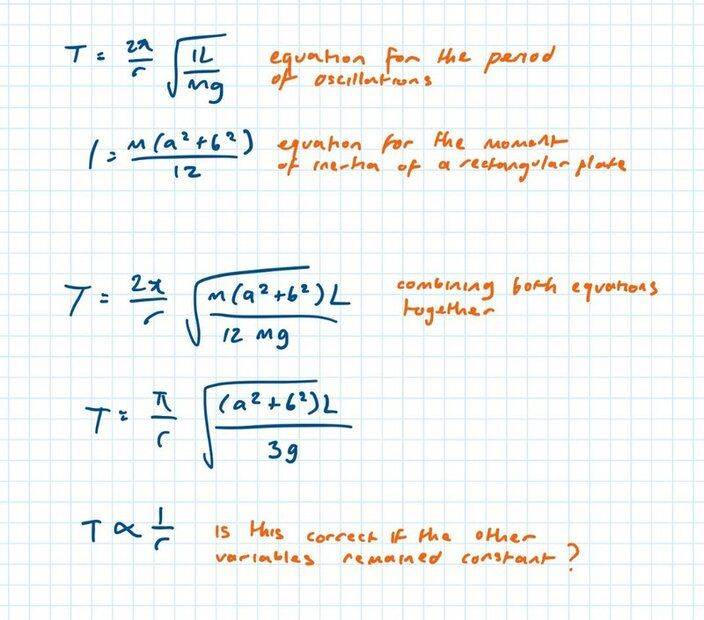 T = 2π/r √(IL/Mg) equation for the period
of oscillations
I = M(a²+b²)/12 equation for the moment
of inertia of a rectangular plate
T = 2π/r √(M(a²+b²)L/12 Mg) combining both equations
together
T = π/r √((a²+b²)L/3g)
T ∝ 1/r Is this correct if the other
variables remained constant?